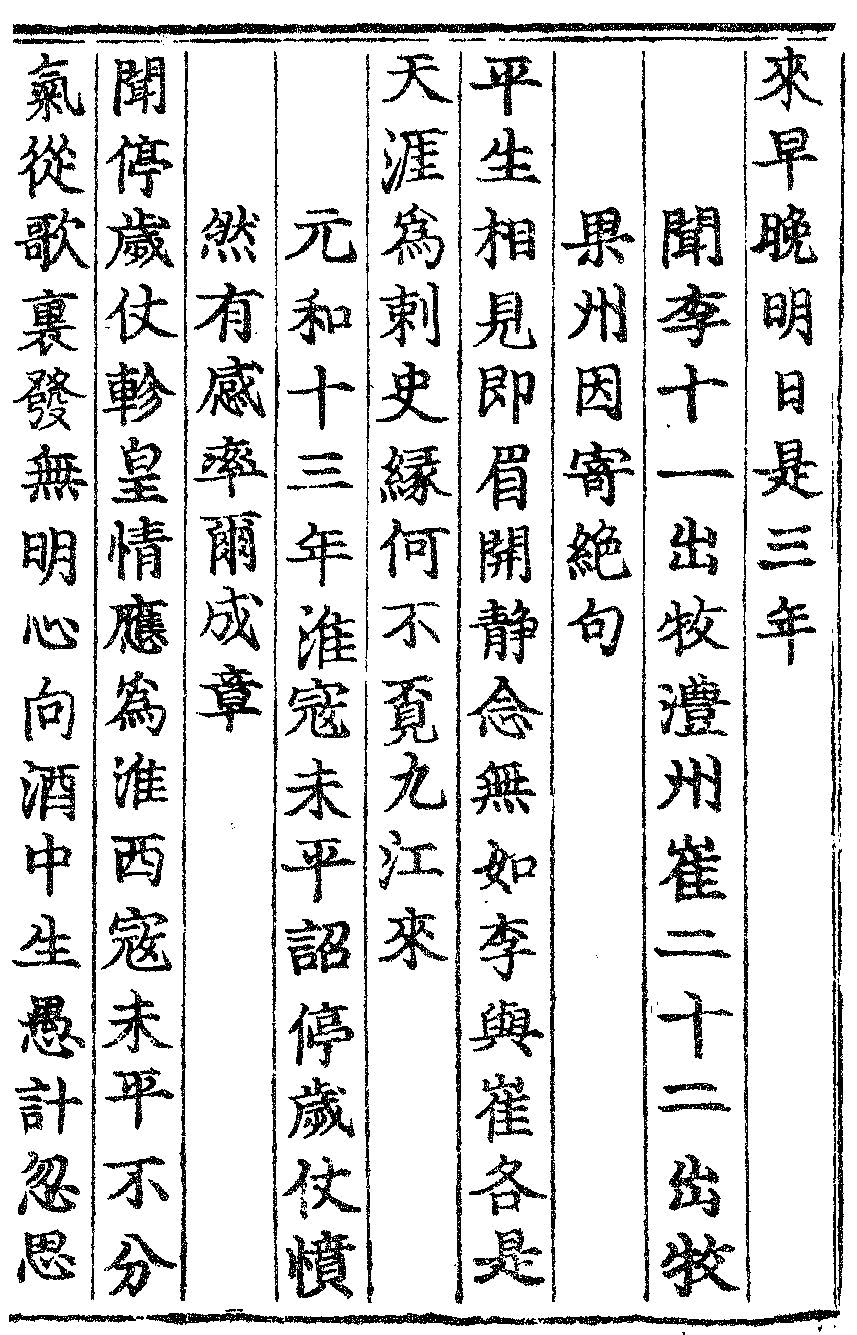 來早晚明日是三年
聞李十一出牧澧州崔二十二出牧
果州因寄絶句
平生相見即眉開静念無如李與崔各是
天涯爲刺史縁何不覔九江來
元和十三年淮寇未平詔停歲仗憤
然有感率爾成章
聞停歲仗軫皇情應爲淮西寇未平不分
氣從歌裏發無明心向酒中生愚計忽思